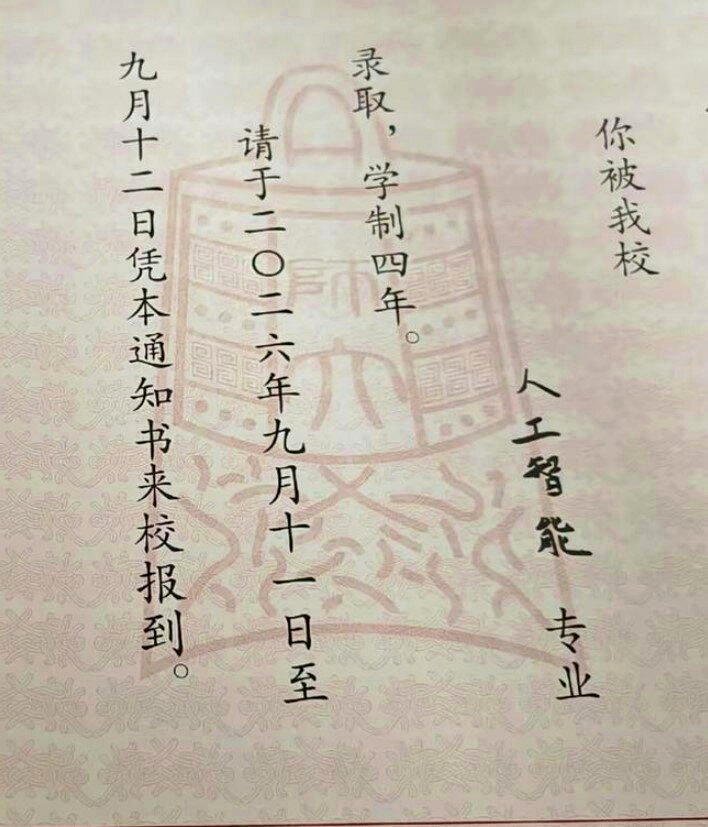 你被我校
人工智能 专业
录取，学制四年。
请于二〇二六年九月十一日至
九月十二日凭本通知书来校报到。
师大